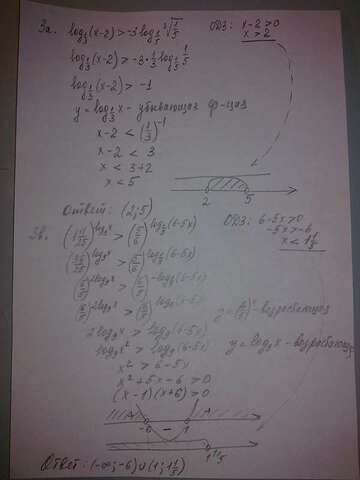 3а. log_{1/3}(x-2) > -3 log_{1/5} ∛(1/5)   ОДЗ: x-2>0
x>2
log_{1/3}(x-2) > -3·1/3 log_{1/5} 1/5
log_{1/3}(x-2) > -1
y = log_{1/3} x - убывающая ф-ция
x-2 < (1/3)^{-1}
x-2 < 3
x < 3+2
x < 5
2 5
Ответ: (2;5)
3в. (1 11/25)^{log_9 x} > (5/6)^{log_{1/9}(6-5x)}   ОДЗ: 6-5x>0
-5x>-6
x < 1 1/5
(36/25)^{log_9 x} > (5/6)^{log_{1/9}(6-5x)}
(6/5)^{2log_9 x} > (5/6)^{-log_9(6-5x)}
(6/5)^{2log_9 x} > (6/5)^{log_9(6-5x)}   y=(6/5)^x - возрастающая
2log_9 x > log_9(6-5x)
log_9 x² > log_9(6-5x)   y = log_9 x - возрастающая
x² > 6-5x
x²+5x-6>0
(x-1)(x+6)>0
-6 - 1
1 1/5
Ответ: (-∞;-6)∪(1; 1 1/5)